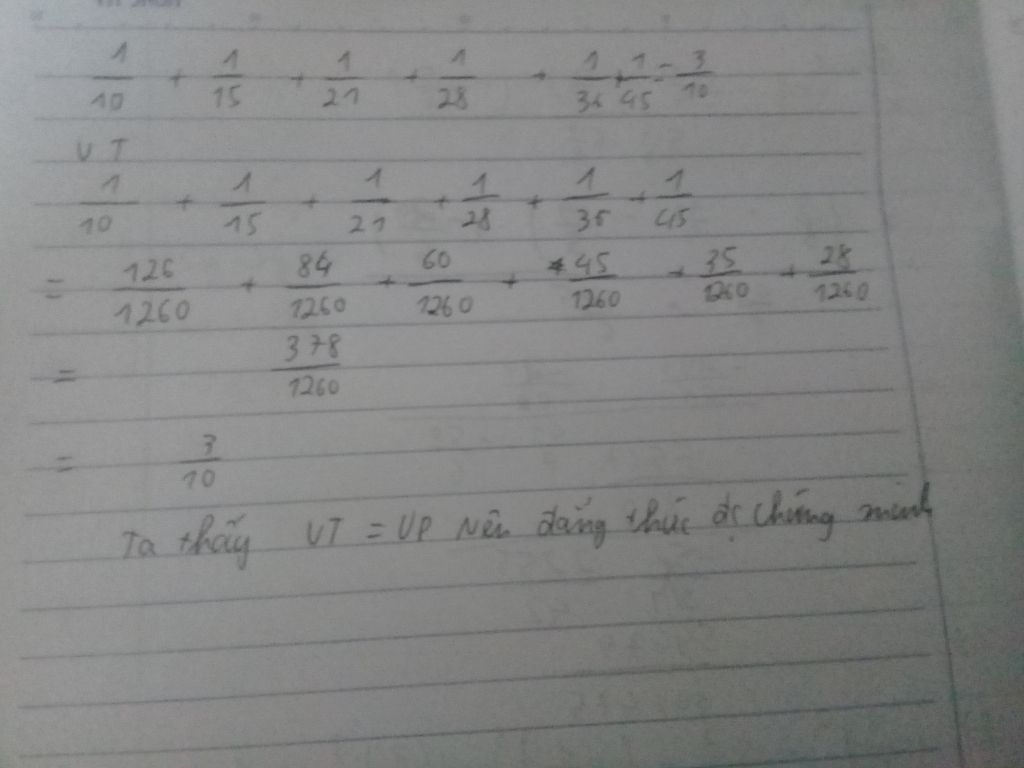 1/10 + 1/15 + 1/21 + 1/28 + 1/36 + 1/45 = 3/10
VT
1/10 + 1/15 + 1/21 + 1/28 + 1/36 + 1/45
= 126/1260 + 84/1260 + 60/1260 + 45/1260 + 35/1260 + 28/1260
= 378/1260
= 3/10
Ta thấy VT = VP Nên đẳng thức đc chứng minh